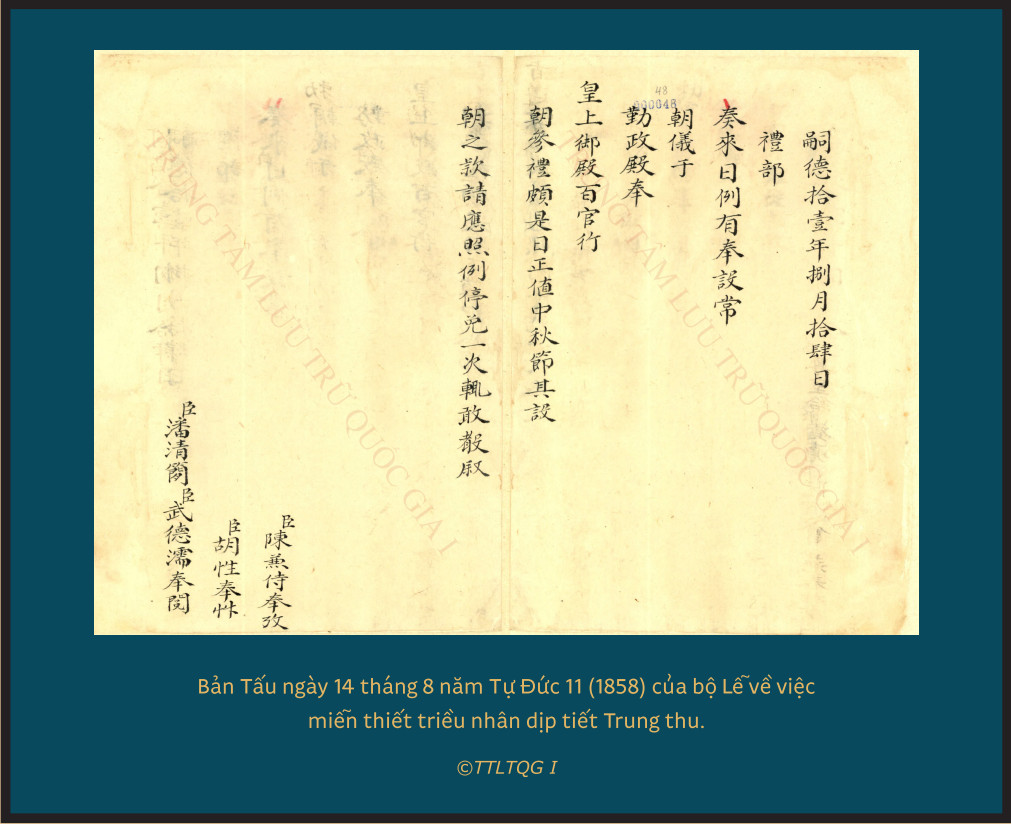 嗣德拾壹年捌月拾肆日
禮部
奏來日例有奉設常
朝儀于
勤政殿奉
皇上御殿百官行
朝參禮頗是日正值中秋節其設
朝之款請應照例停免一次輒敢聲叙
臣陳兼侍奉攷
臣胡性奉忭
臣潘清簡臣武德濡奉閱
48
000048
TRUNG TÂM LƯU TRỮ QUỐC GIA I
TRUNG TÂM LƯU TRỮ QUỐC GIA I
Bản Tấu ngày 14 tháng 8 năm Tự Đức 11 (1858) của bộ Lễ về việc
miễn thiết triều nhân dịp tiết Trung thu.
©TTLTQG I